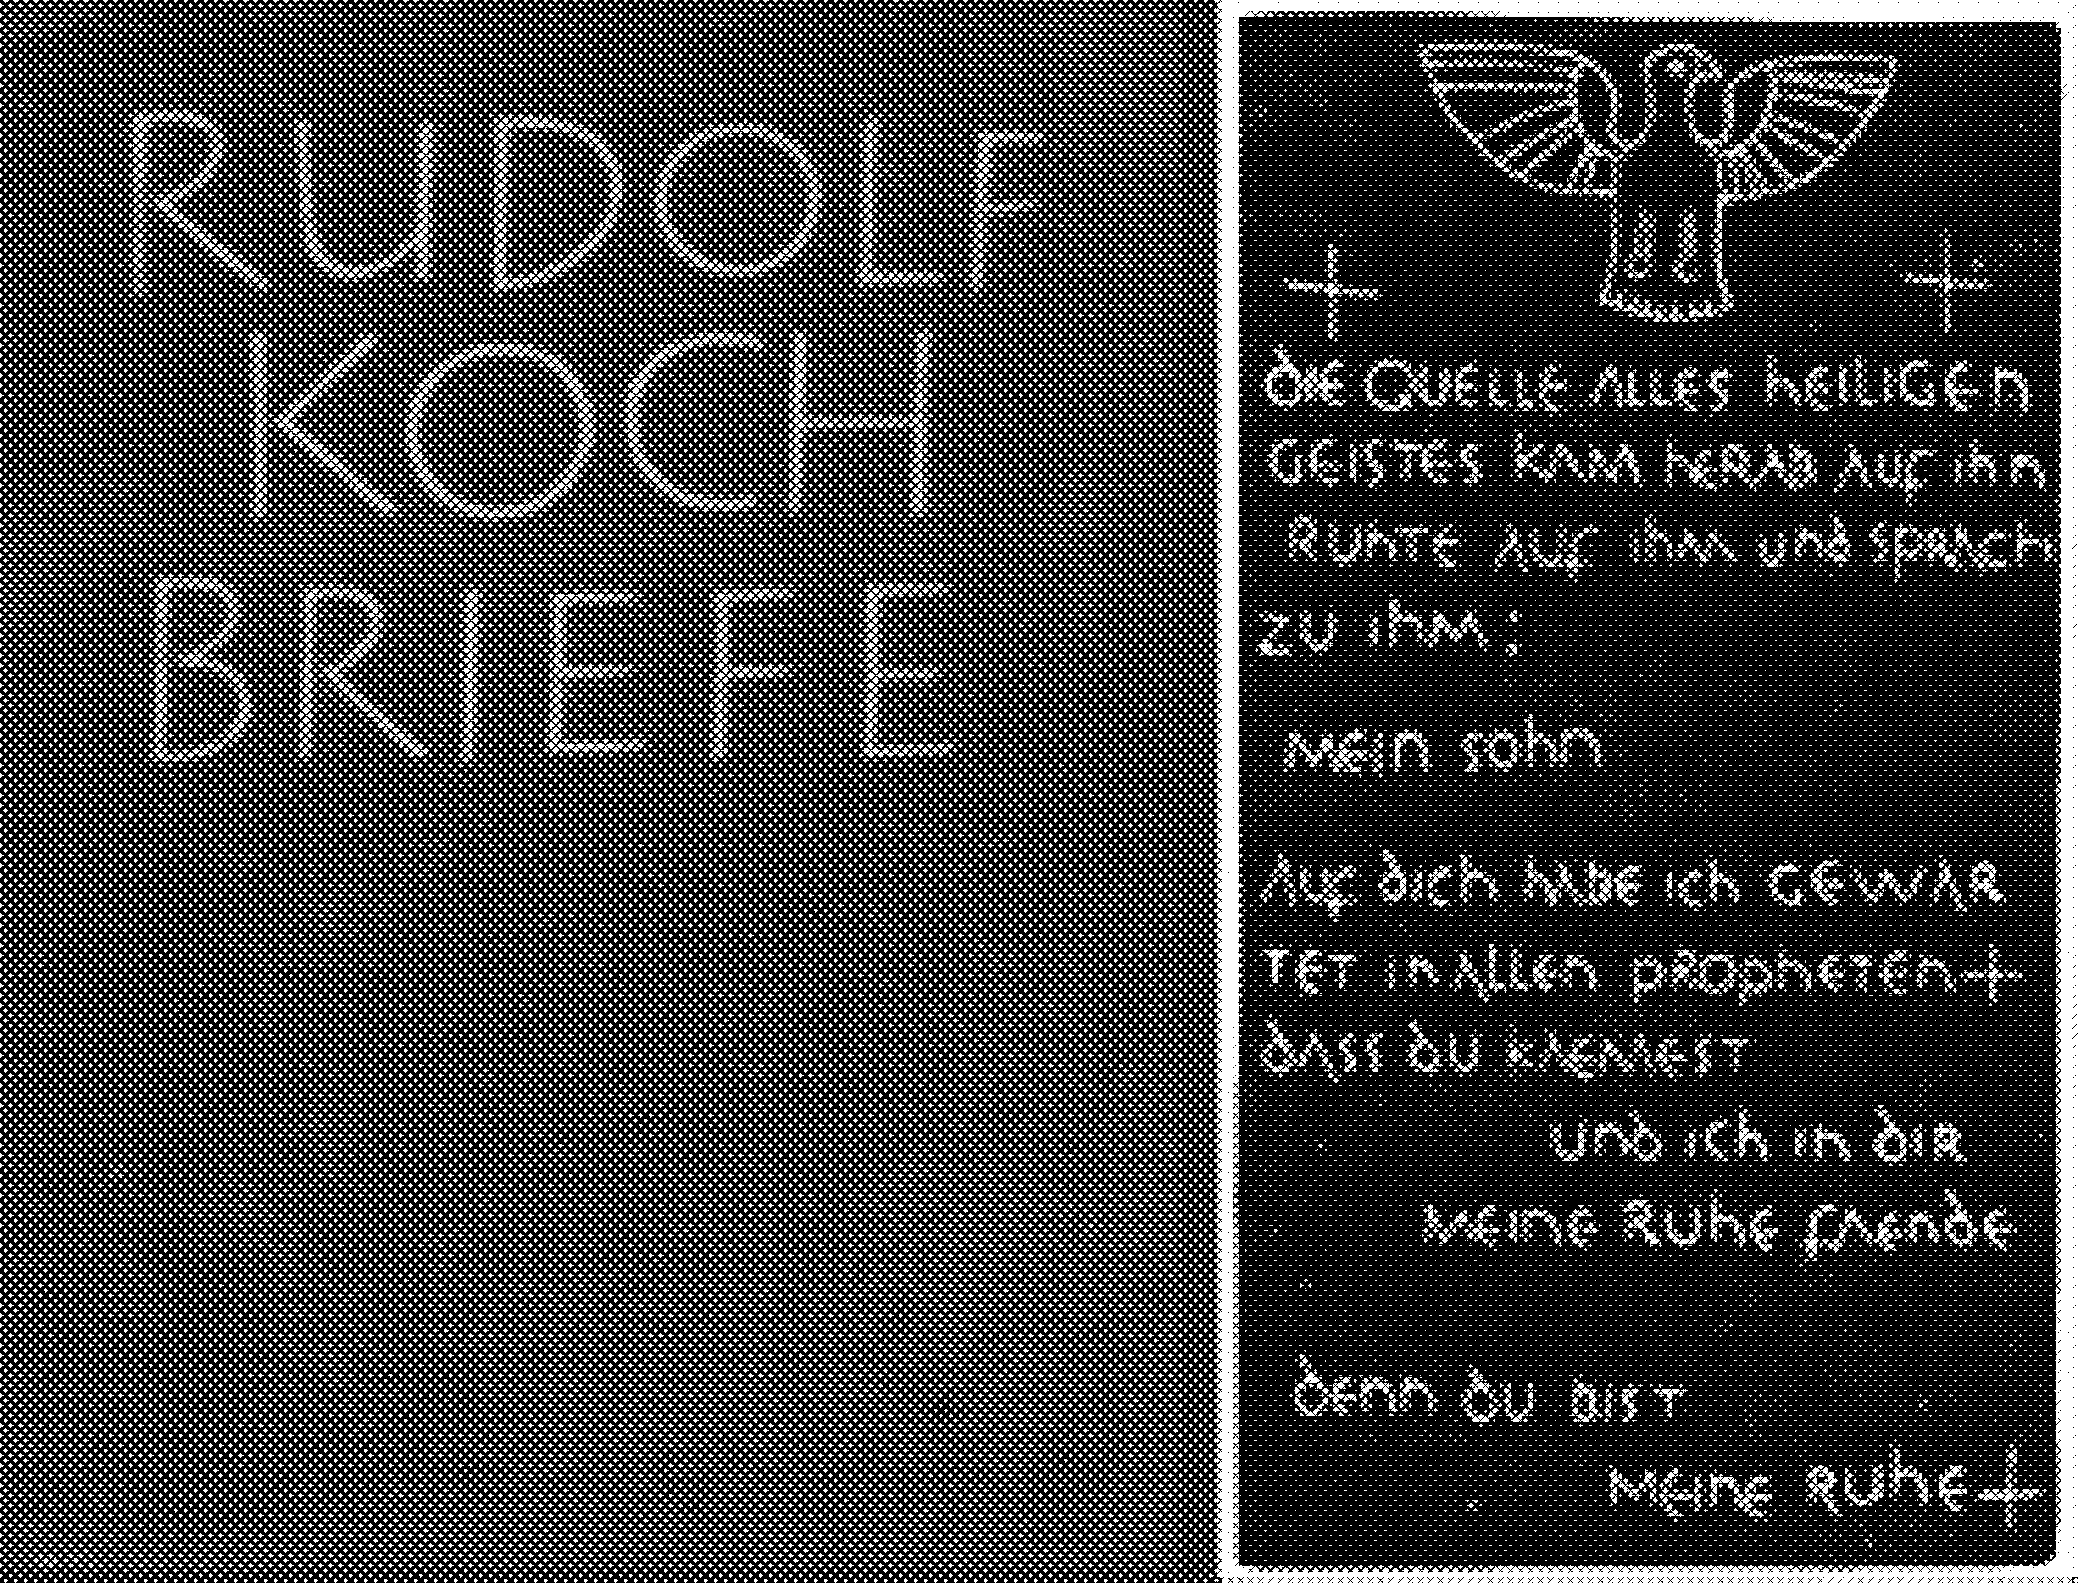 RUDOLF
KOCH
BRIEFE
DIE QUELLE ALLES HEILIGEN
GEISTES KAM HERAB AUF IHN
RUHTE AUF IHM UND SPRACH
ZU IHM:
MEIN SOHN
AUF DICH HABE ICH GEWAR
TET IN ALLEN PROPHETEN+
DASS DU KAEMEST
UND ICH IN DIR
MEINE RUHE FAENDE
DENN DU BIST
MEINE RUHE+